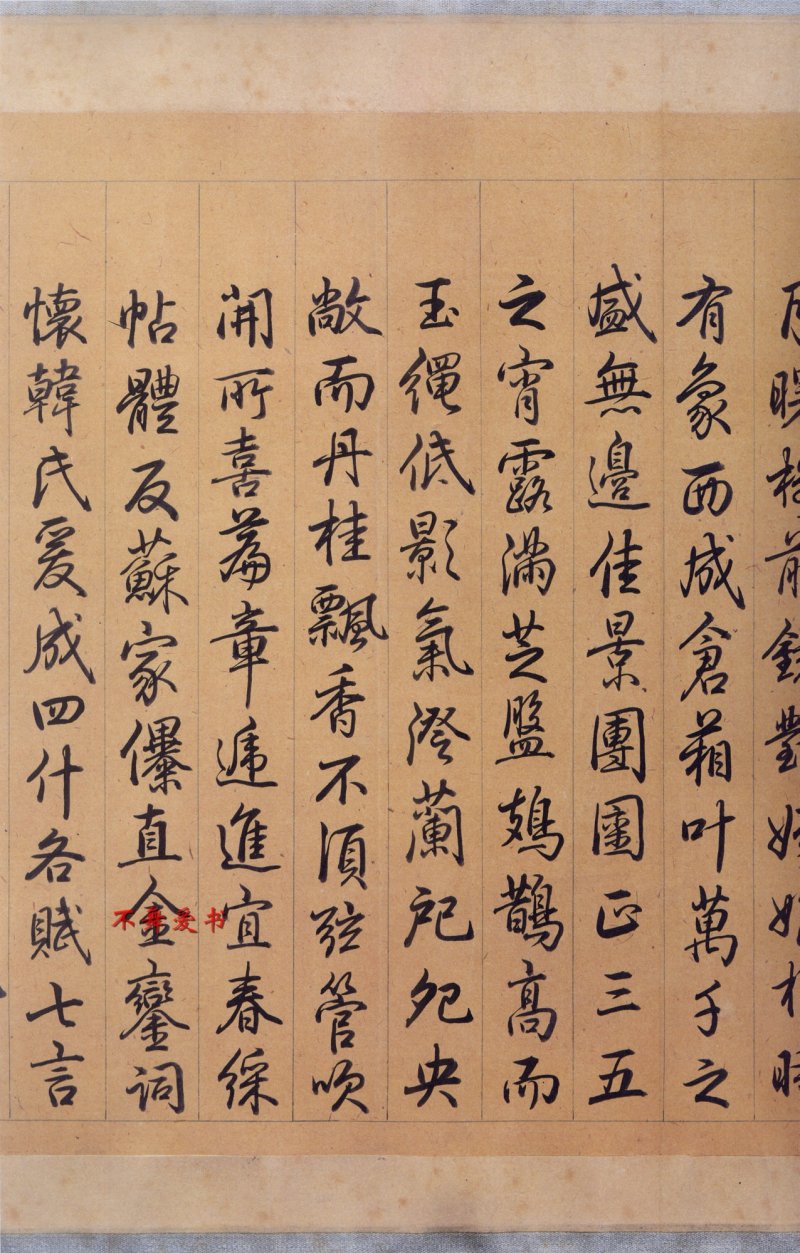 有象西成倉葙叶萬千之
盛無邊佳景團圞正三五
之宵露滿芝盤鳷鵲高而
玉繩低影氣澄蘭戺夗央
敞而丹桂飄香不須絃管喚
開所喜篇章遞進宜春綵
帖體反蘇家儤直金鑾詞
懷韓氏爰成四什各賦七言